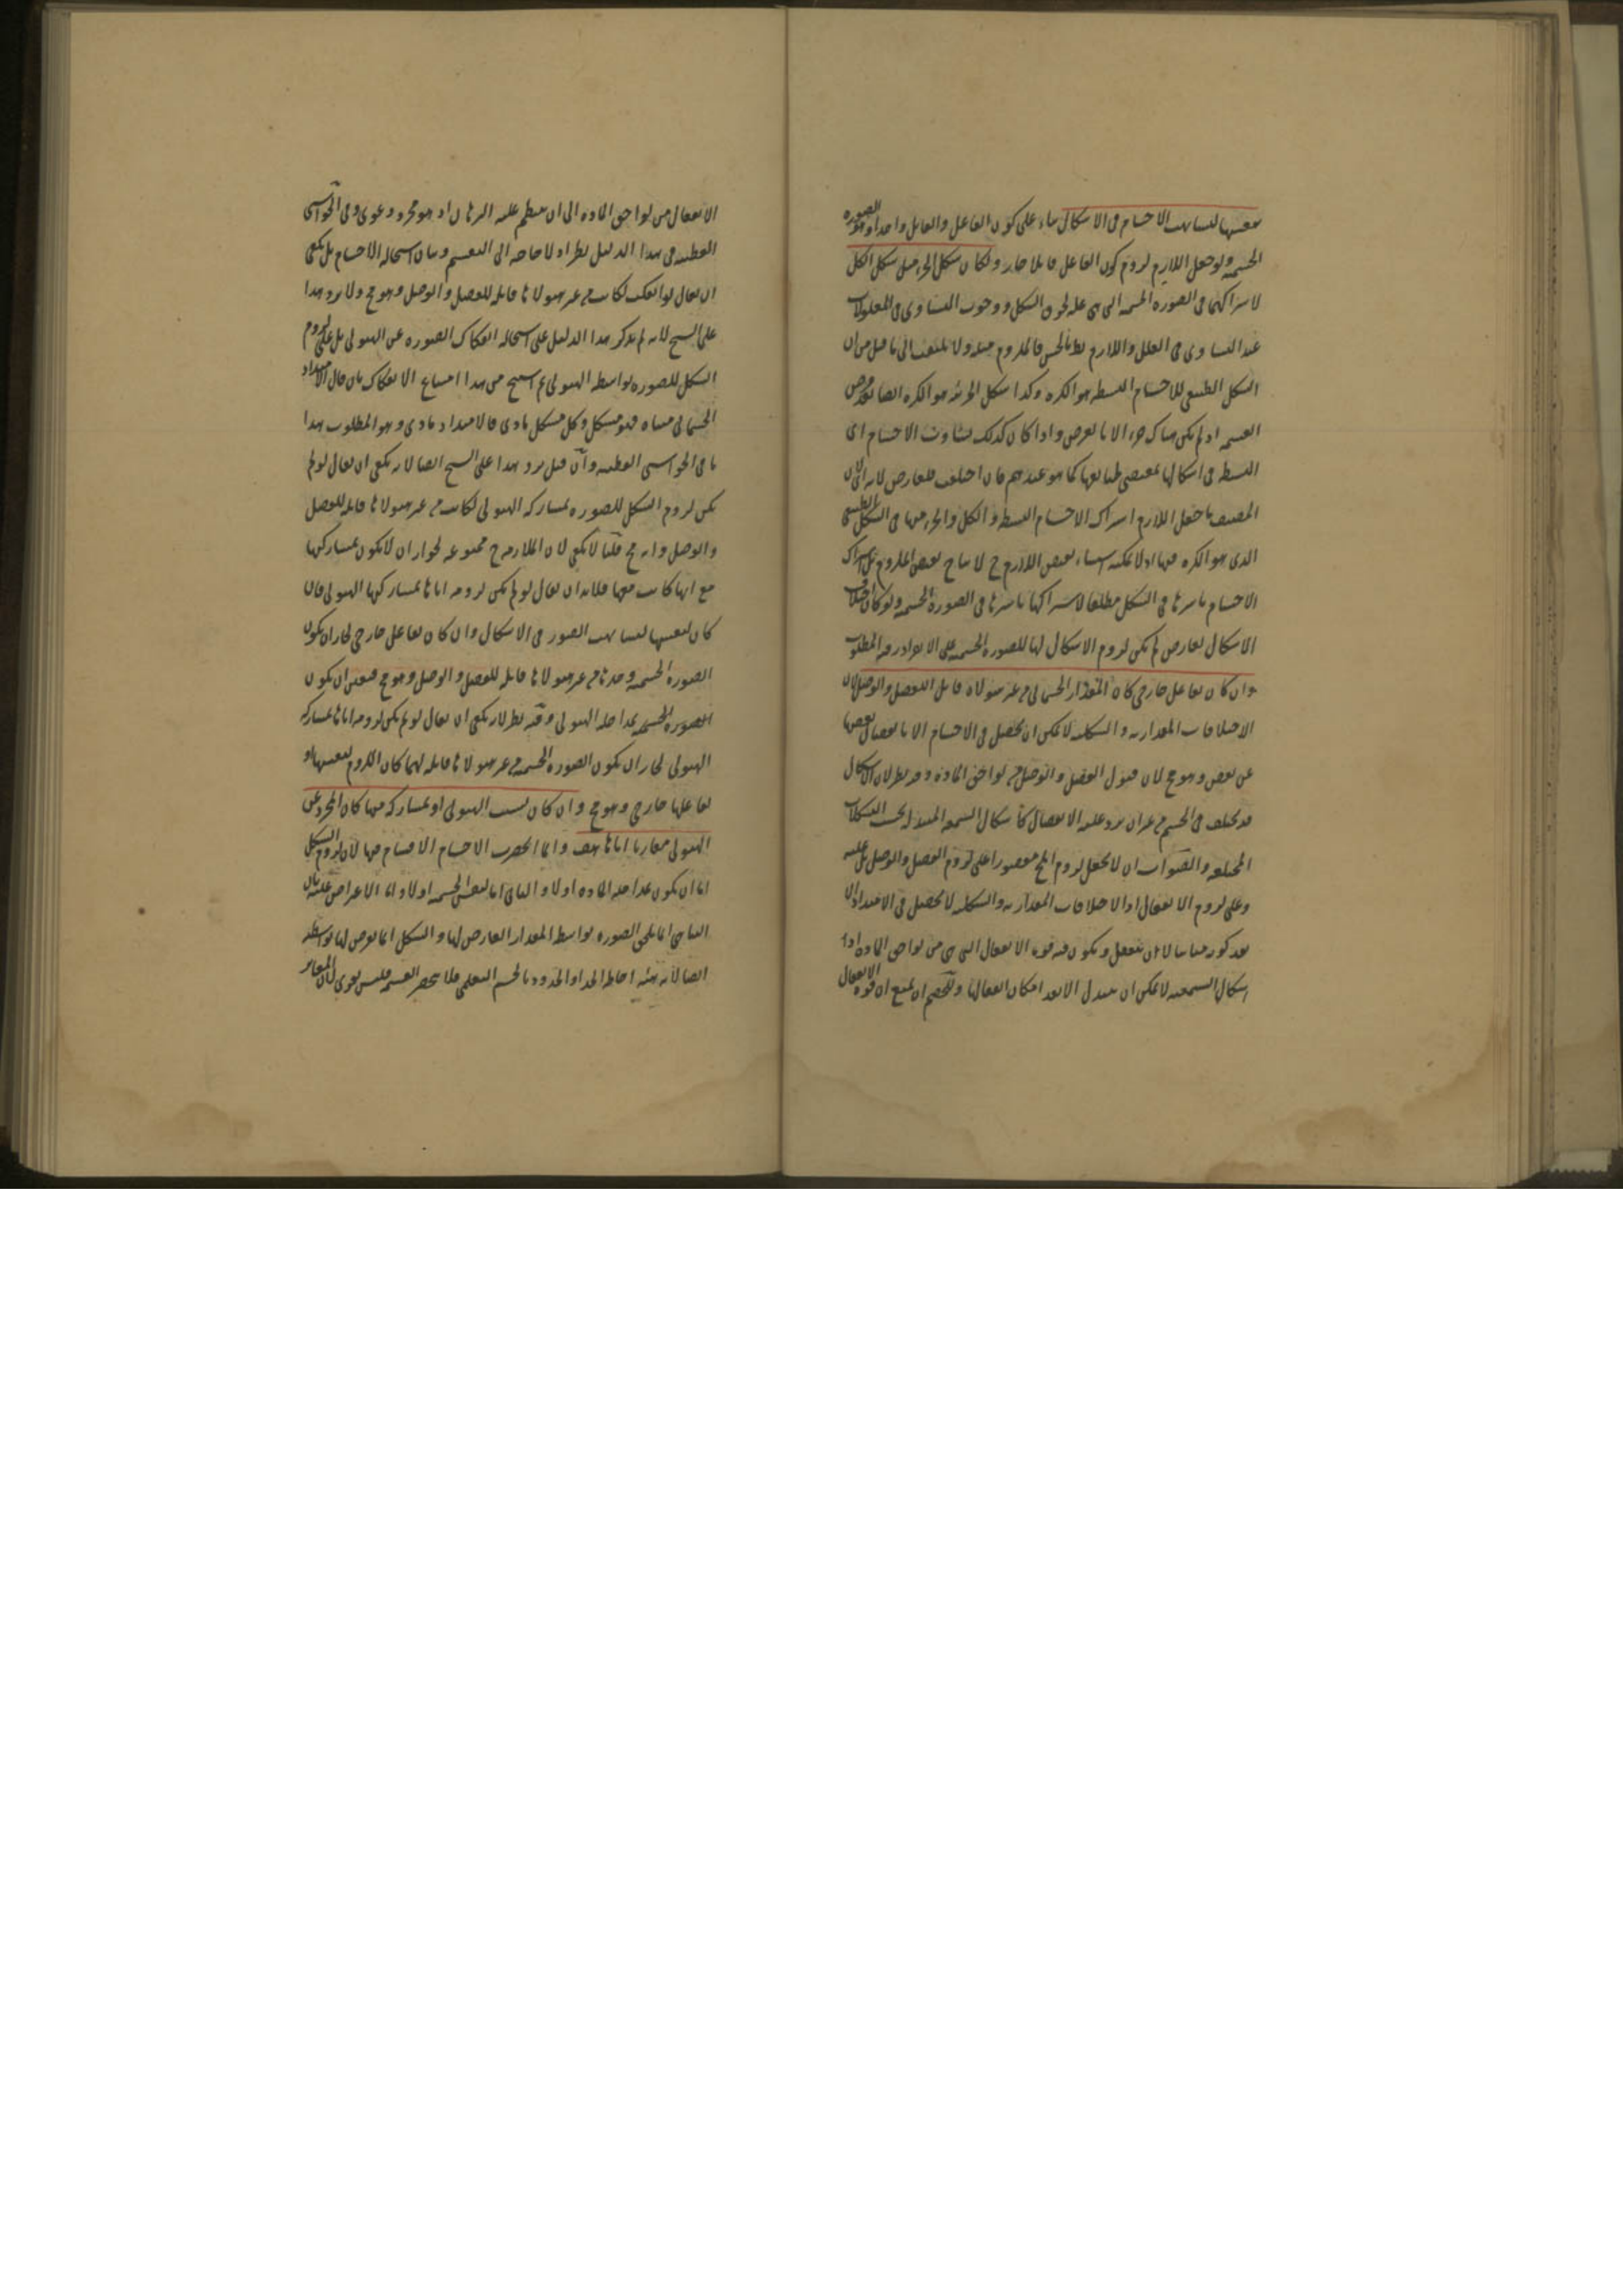 بنفسها لتشابهت الاجسام فى الاشكال بناء على كون الفاعل والقابل واحدا وهو الصورة
الجسمية ولو جعل اللازم لزوم كون الفاعل قابلا جاز و لكان شكل الجزء مثل شكل الكل
لاشتراكهما فى الصورة الجسمية التى هى علة لحوق الشكل ووجوب التساوى فى المعلولات
عند التساوى فى العلل واللازم بط بالحس فالملزوم مثله ولا يلتفت الى ما قيل من ان
الشكل الطبيعى للاجسام البسيطة هو الكرة وكذا شكل الجزء هو الكرة ايضا بعد فرض
القسمة اذ لم يكن هناك جزء الا بالعرض واذا كان كذلك تشابهت الاجسام اى
البسيطة فى اشكالها بمقتضى طبايعها كما هو عندهم فان اختلفت فلعارض لانه لان
المصنف ما جعل اللازم اشتراك الاجسام البسيطة والكل والجزء منها فى الشكل الطبيعى
الذى هو الكرة فيها اذ لا يمكنه استثناء نقيض اللازم ح لانتاج نقيض الملزوم بل اشتراك
الاجسام باسرها فى الشكل مطلقا لاشتراكها باسرها فى الصورة الجسمية ولو كان اختلاف
الاشكال لعارض لم يكن لزوم الاشكال لها للصورة الجسمية على الانفراد وفيه المطلوب
وان كان بفاعل خارجى كان المقدار الجسمانى من غير هيولاه قابل الفصل والوصل لان
الاختلافات المقدارية والشكلية لا يمكن ان تحصل فى الاجسام الا بانفصال بعضها
عن بعض وهو مح لان قبول الفصل والوصل من لواحق المادة وفيه نظر لان الاشكال
قد تختلف فى الجسم من غير ان يرد عليه الانفصال كاشكال الشمعة المتبدل بحسب التشكلات
المختلفة والصواب ان لا يجعل لزوم المح مقصورا على لزوم الفصل والوصل بل عليه
وعلى لزوم الانفعال اذ الاختلافات المقدارية والشكلية لا تحصل فى الامتداد الا
بعد كونه متاتيا لان ينفعل ويكون فيه قوة الانفعال التى هى من لواحق المادة اذ
اشكال الشمعة لا يمكن ان تتبدل الا بعد امكان انفعالها وللخصم ان يمنع ان قوة الانفعال
الانفعال من لواحق المادة الى ان ينتظم عليه البرهان اذ هو مجرد دعوى وفى الحواشى
القطبية فى هذا الدليل نظر اذ لا حاجة الى التقسيم وبيان استحالة الاقسام بل يكفى
ان يقال لو انفكت لكانت من غير هيولاها قابلة للفصل والوصل وهو مح ولا يرد هذا
على الشيخ لانه لم يذكر هذا الدليل على استحالة انفكاك الصورة عن الهيولى بل على لزوم
الشكل للصورة بواسطة الهيولى ثم استنتج من هذا امتناع الانفكاك بان قال الامتداد
الجسمانى متناه فهو متشكل وكل متشكل مادى فالامتداد مادى وهو المطلوب هذا
ما فى الحواشى القطبية وان قيل يرد هذا على الشيخ ايضا لانه يكفى ان يقال لو لم
يكن لزوم الشكل للصورة بمشاركة الهيولى لكانت من غير هيولاها قابلة للفصل
والوصل وانه مح قلنا لا يكفى لان الملازمة ح ممنوعة لجواز ان لا تكون بمشاركتها
مع انها كانت معها فلابد ان يقال لو لم يكن لزومه اياها بمشاركتها الهيولى فان
كان لنفسها لتشابهت الصور فى الاشكال وان كان بفاعل خارجى لجاز ان تكون
الصورة الجسمية وحدها من غير هيولاها قابلة للفصل والوصل وهو مح فتعين ان يكون
للصورة الجسمية بمداخلة الهيولى وفيه نظر لانه يكفى ان يقال لو لم يكن لزومه اياها بمشاركة
الهيولى لجاز ان تكون الصورة الجسمية من غير هيولاها قابلة لهما كان اللزوم لنفسها او
لفاعلها خارجى وهو مح وان كان بسبب الهيولى او بمشاركة منها كان المجرد عن
الهيولى مقارنا اياها هف وانما انحصرت الاقسام فيها لان لزوم الشكل
اما ان يكون بمداخلة المادة اولا والثانى اما لنفس الجسمية اولا واما الاعتراض عليه بان
التناهى انما يلحق الصورة بواسطة المقدار العارض لها والشكل انما يعرض لها بواسطة
ايضا لانه هيئة احاطة الحد او الحدود بالجسم التعليمى فلا تنحصر القسمة فليس بقوى لان المغاير